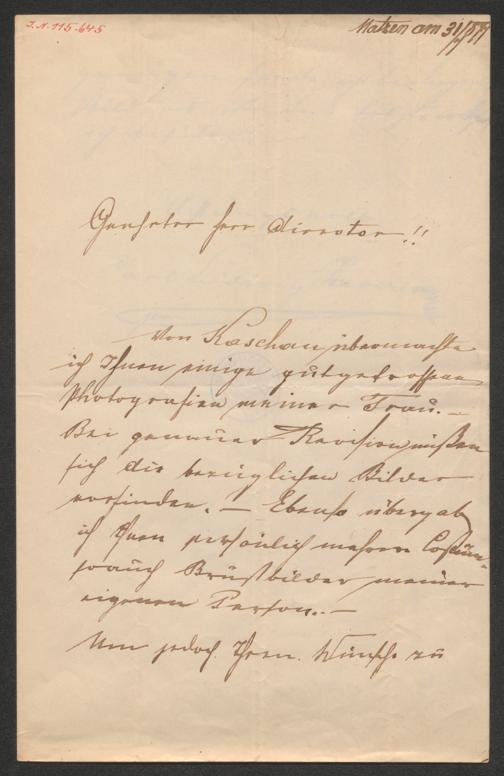 J.N. 115.645
Matzen am 31/
Geehrter Herr Director!!
Von Kaschau übermachte
ich Ihnen einige gutgetroffene
Photografien meiner Frau. –
Bei genauer Revision müßen
sich die bezüglichen Bilder
vorfinden. – Ebenso übergab
ich Ihnen persönlich mehrere Costüm-
sowie auch Brustbilder meiner
eigenen Person. –
Um jedoch Ihren Wunsch zu